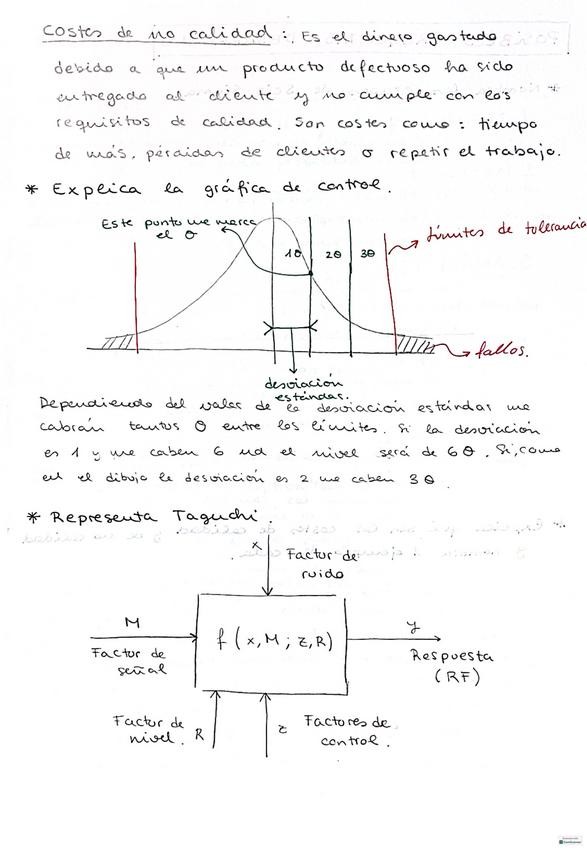 Costes de no calidad: Es el dinero gastado
debido a que un producto defectuoso ha sido
entregado al cliente y no cumple con los
requisitos de calidad. Son costes como: tiempo
de más, pérdidas de clientes o repetir el trabajo.
* Explica la gráfica de control.
Este punto me marca
el θ
1θ 2θ 3θ
Límites de tolerancia
fallos.
desviación
estándar.
Dependiendo del valor de la desviación estándar me
cabrán tantos θ entre los límites. Si la desviación
es 1 y me caben 6 ud el nivel será de 6θ. Si, como
en el dibujo la desviación es 2 me caben 3θ
* Representa Taguchi.
x
Factor de
ruido
M
Factor de
señal
f (x, M; z, R)
y
Respuesta
(RF)
Factor de
nivel. R
z Factores de
control.